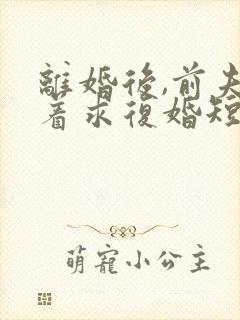 離婚後,前夫
著求復婚短
萌寵小公主